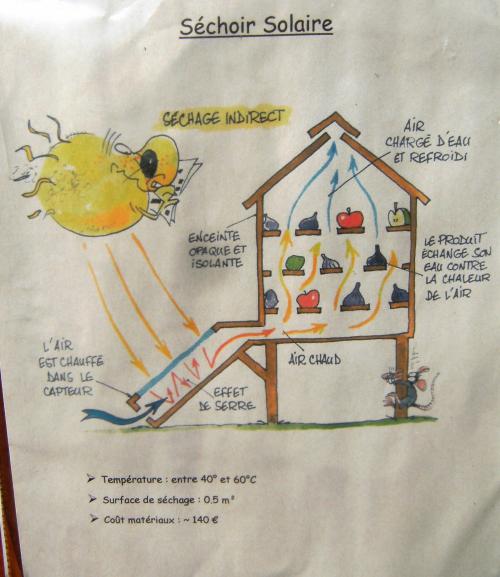 Séchoir Solaire
SÉCHAGE INDIRECT
AIR
CHARGÉ D'EAU
ET REFROIDI
ENCEINTE
OPAQUE ET
ISOLANTE
LE PRODUIT
ÉCHANGE SON
EAU CONTRE
LA CHALEUR
DE L'AIR
L'AIR
EST CHAUFFÉ
DANS LE
CAPTEUR
AIR CHAUD
EFFET
DE SERRE
➤ Température : entre 40° et 60°C
➤ Surface de séchage : 0,5 m²
➤ Coût matériaux : ~ 140 €